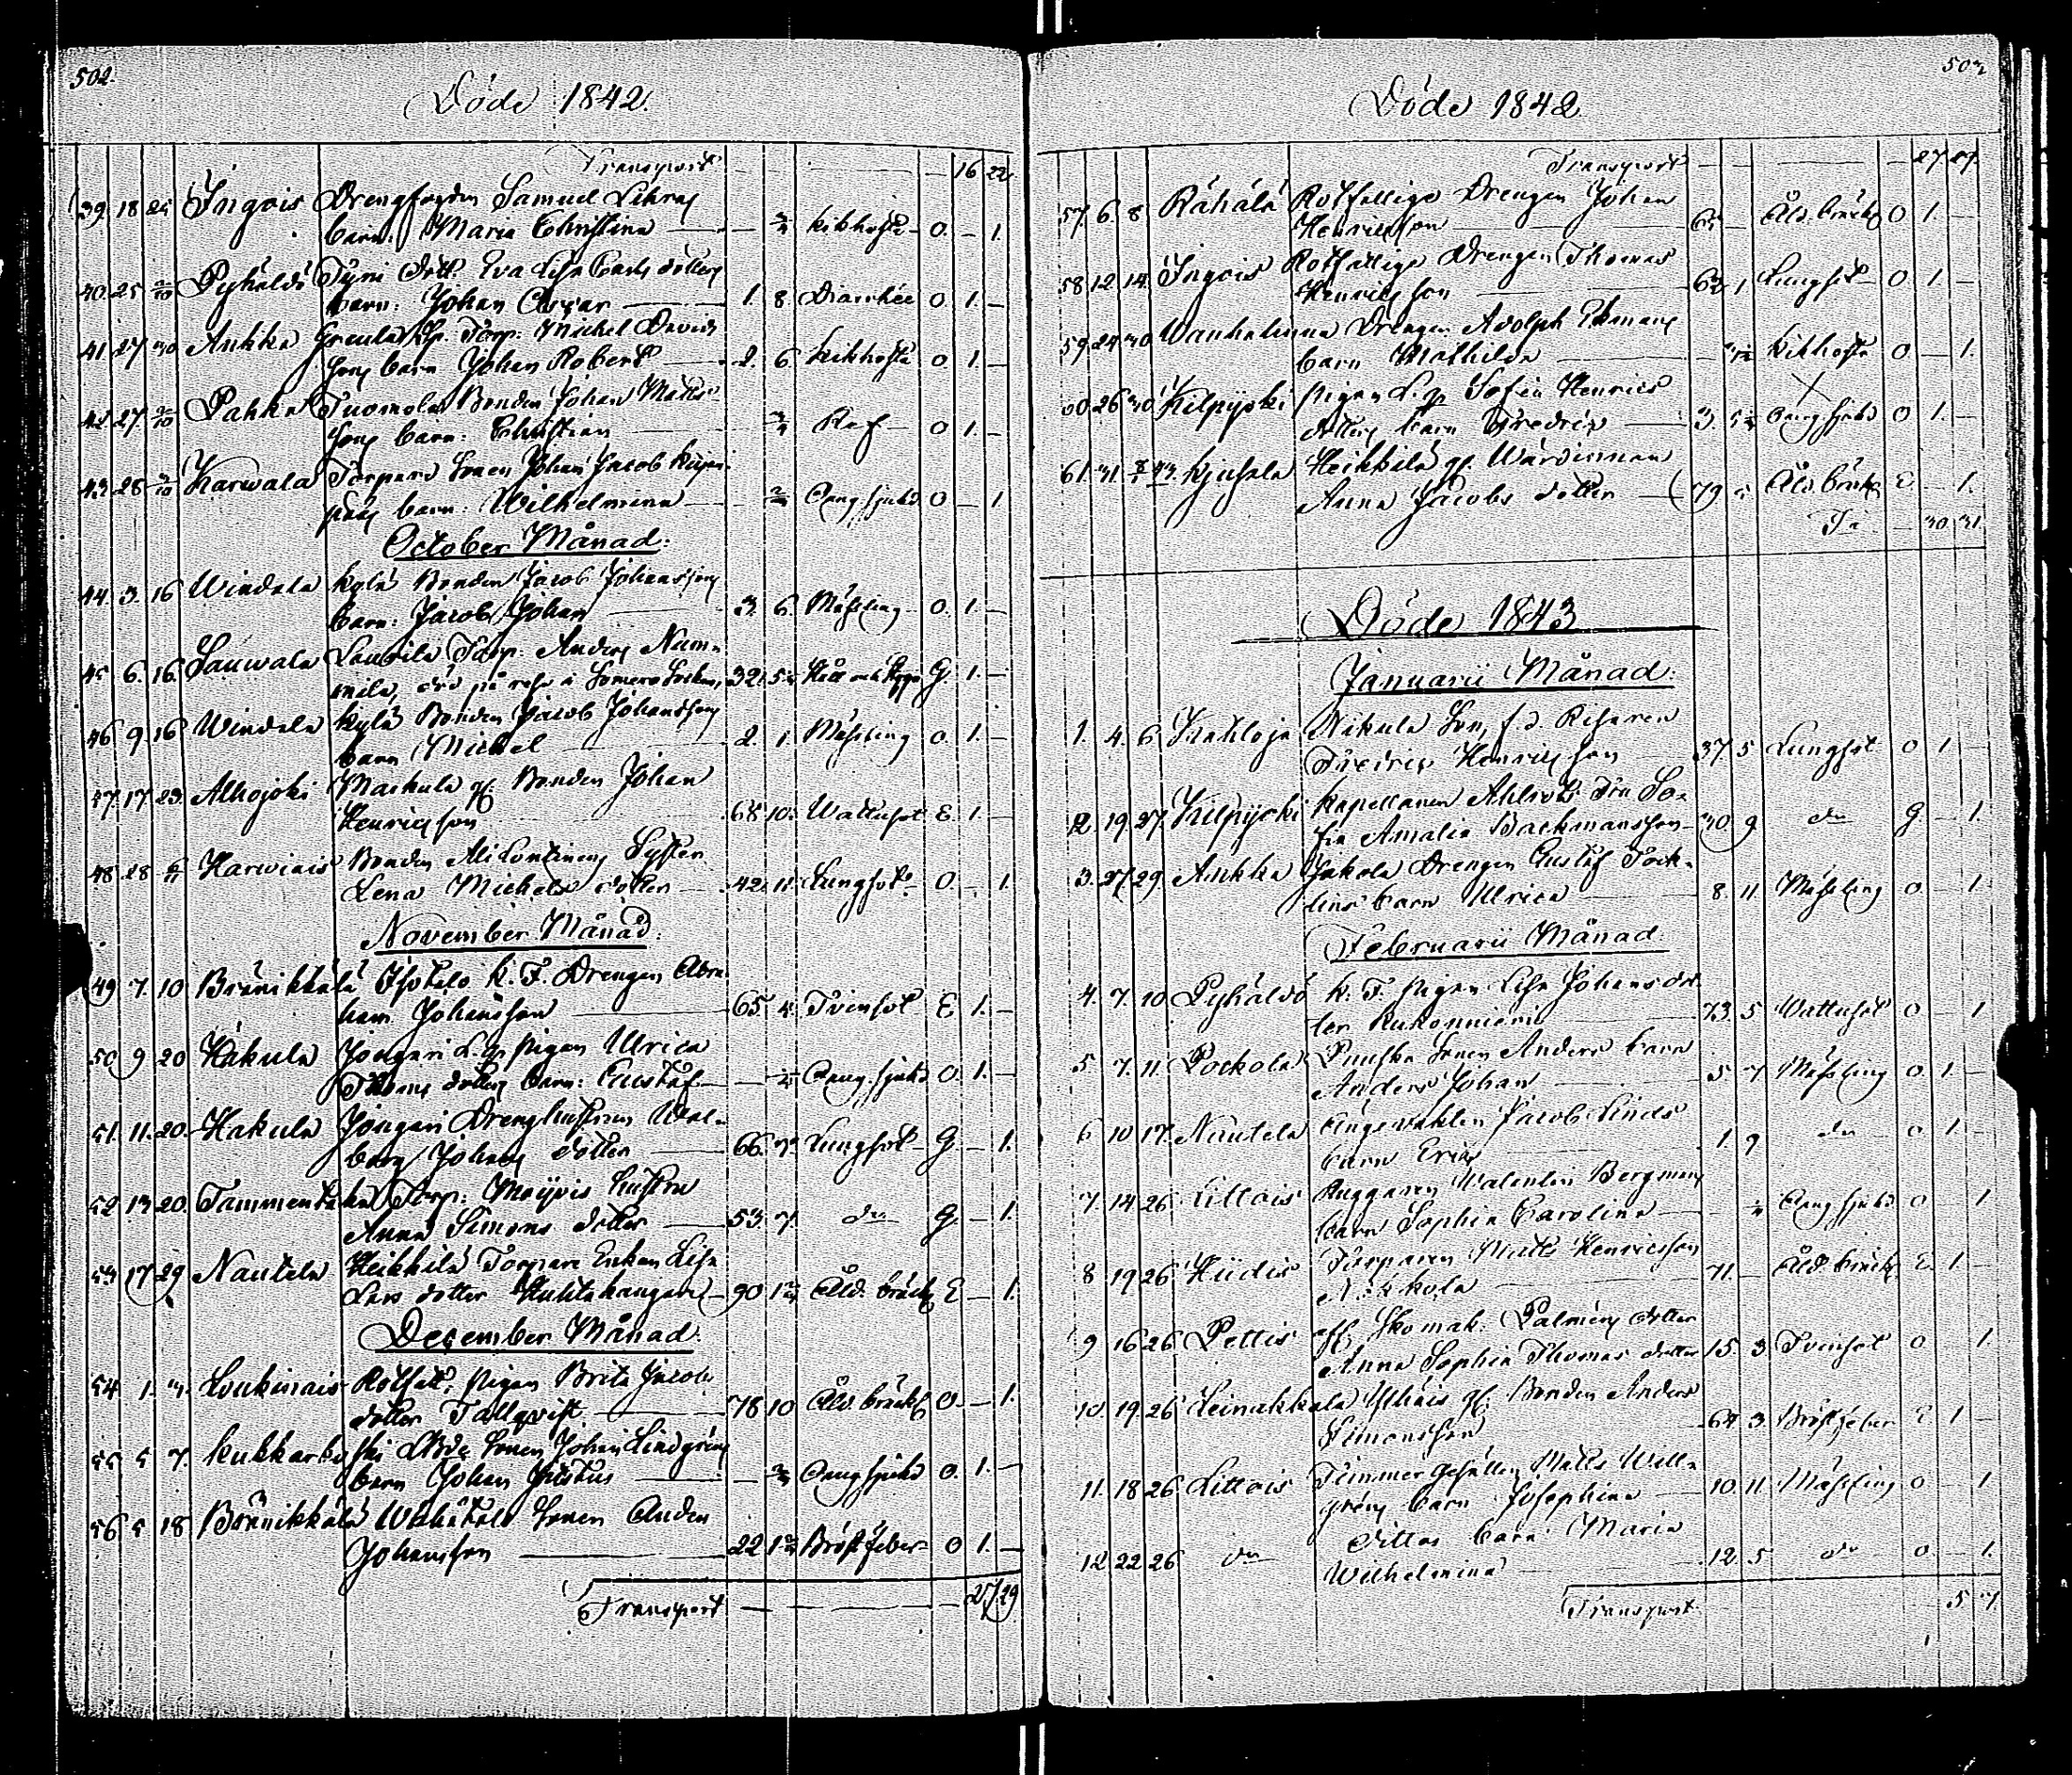 502.
Döde 1842.
Transport — — — 16 22
39. 18 25 Ingois Drengfogden Samuel
barn: Maria Christina — kikhosta O. — 1.
40. 25 2/10 Pyhäldö Tyni Eva Lisa
barn: Johan Oscar — 1. 8 Diarrhée O. 1. —
41 27 30 Ankka Torp: Michel Davids
sons barn Johan Robert — 2. 6. Kikhosta O. 1. —
42 27. 2/10 Pahka Tuomola Bonden Johan Matts
sons barn: Christian — O 1. —
43 28 Karwala Torpare Sonen Johan Jacob
barn: Wilhelmina — Oang. sjukd O — 1
October Månad:
44. 3. 16 Windala kylä Bonden Jacob Johanssons
barn: Jacob Johan — 3. 6. Mässling O. 1. —
45 6. 16. Sauwala Laurila Torp: Anders Num-
mila, död på resa i Somero Socken, 32. G. 1. —
46 9. 16 Windala kylä Bonden Jacob Johanssons
barn Michel — 2. 1. Mässling O. 1. —
47. 17 23. Alhojoki Maskula gf. Bonden Johan
Henricsson 68 10. Wattusot E. 1. —
48 28 Harwiais Bonden Syster
Lena Michels dotter — 42. 11. Lungsot O. — 1.
November Månad:
49 7. 10 Bränikkälä Isotalo k. F. Drengen Abra-
ham Johansson — 65 4. Tvinsot E 1. —
50 9 20 Hakula Jongari L. q. Pigan Ulrica
Thoms dotters barn: Gustaf — Oang. sjukd O. 1. —
51. 11. 20. Hakula Jongari Drenghustrun Wal-
borg Johans dotter — 66. Lungsot G. — 1.
52 13 20. Tammentaka Torp: hustru
Anna Simons dotter — 53. 7. do G. — 1.
53 17 29 Nautela Heikkilä Torpare Enkan Lisa
Lars dotter — 90 Åld. bräckl E — 1.
December Månad:
54 1. 4. Loukinais Rotfat: Pigan Brita Jacobs
dotter Tallqvist. — 78 10 Åld. bräckl O. — 1.
55 5 7. Kukkarkoski Sonen Johan Lindgréns
barn Johan Justus — Oang sjukd O. 1. —
56 5 18 Bränikkälä Sonen Anders
Johansson — 22 Bröstfeber O 1. —
Transport — — — 27 29
503
Döde 1842
Transport — — — 27 29.
57. 6. 8 Rähälä Rotfattige Drengen Johan
Henricsson — 65 — Åld. bräckl O 1. —
58 12 14. Ingois Rotfattige Drengen Thomas
Henricsson — 62 1 Lungsot — O 1. —
59 24 30 Wanhalinna Drengen Adolph Ekmans
barn Mathilda — Kikhosta O — 1.
60 26 30 Kilpijoki Pigan L. q. Sofia Henrics
dotters barn Fredric — 3. Oang sjukd O 1. —
61. 31. Kjusala Heikkilä gf. Wärdinnan
Anna Jacobs dotter — 79 Åld. bräckl E — 1.
— 30 31
Döde 1843
Januarii Månad:
1. 4. 6 Nikula Son, f. d. Ryssaren
Fredric Henricsson 37 5 Lungsot O 1. —
2. 19 27 Kilpijoki Kapellanen Ahlrots Fru So-
fia Amalia Backmansson 30 9 do G — 1.
3. 27 29 Ankka Jakola Drengen Gustaf Tock-
lins barn Ulrica — 8. 11 Mässling O — 1
Februarii Månad
4. 7. 10 Pyhäldö k. F. Pigan Lisa Johans dot-
ter — 73. 5 Wattusot O — 1
5 7. 11. Pockola Puuska Sonen Anders barn
Anders Johan — 5 7 Mässling O. 1. —
6 10 17. Nautela Jacob Linds
barn Eric — 1. 9 do O 1. —
7. 14 26 Littois Ruggaren Walentin Bergmans
barn Sophia Carolina — Oang sjukd O 1
8 19 26 Hiidis Torparen Matts Henricsson
71. — Åld. bräckl. E. 1. —
9 16 26 Pettis Skomak: Palméns dotter
Anna Sophia Thomas dotter 15 3 Tvinsot O 1.
10. 19 26 Leinakkala Ylhäis gf. Bonden Anders
Simonsson 64 3. Bröstfeber E 1 —
11. 18 26 Littois Timmer Gesällen Matts Wall-
gréns barn Josephina — 10 11 Mässling O — 1
12. 22 26 do Dittos barn Maria
Wilhelmina — 12. 5 do O. — 1.
Transport 5 7.